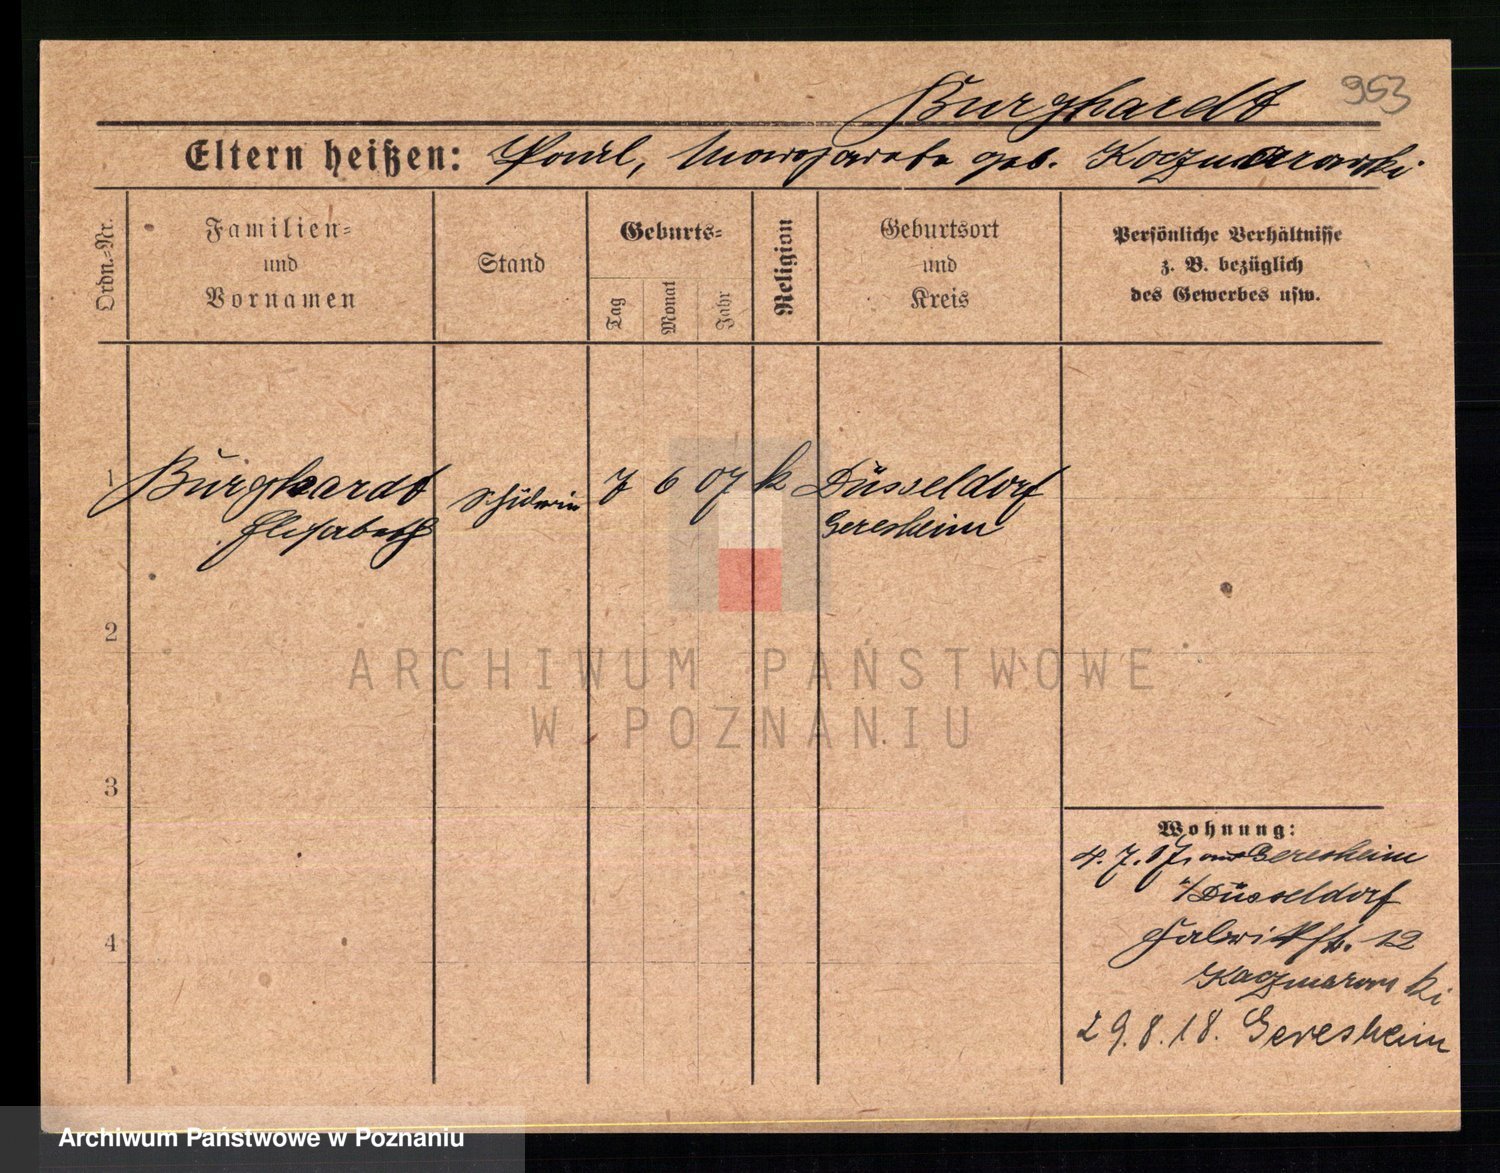 Burghardt 953
Eltern heißen: Paul, Margarete geb. Kaczmarowski
Ordn.-Nr.
Familien-
und
Vornamen
Stand
Geburts-
Tag
Monat
Jahr
Religion
Geburtsort
und
Kreis
Persönliche Verhältnisse
z. B. bezüglich
des Gewerbes usw.
1 Burghardt 7 6 07 k Düsseldorf
Elisabeth Schülerin Geresheim
2
ARCHIWUM PAŃSTWOWE
W POZNANIU
3
Wohnung:
4. 7. 17. aus Geresheim
b/Düsseldorf
4 Fabrikstr. 12
Kaczmarowski
29. 8. 18. Geresheim
Archiwum Państwowe w Poznaniu